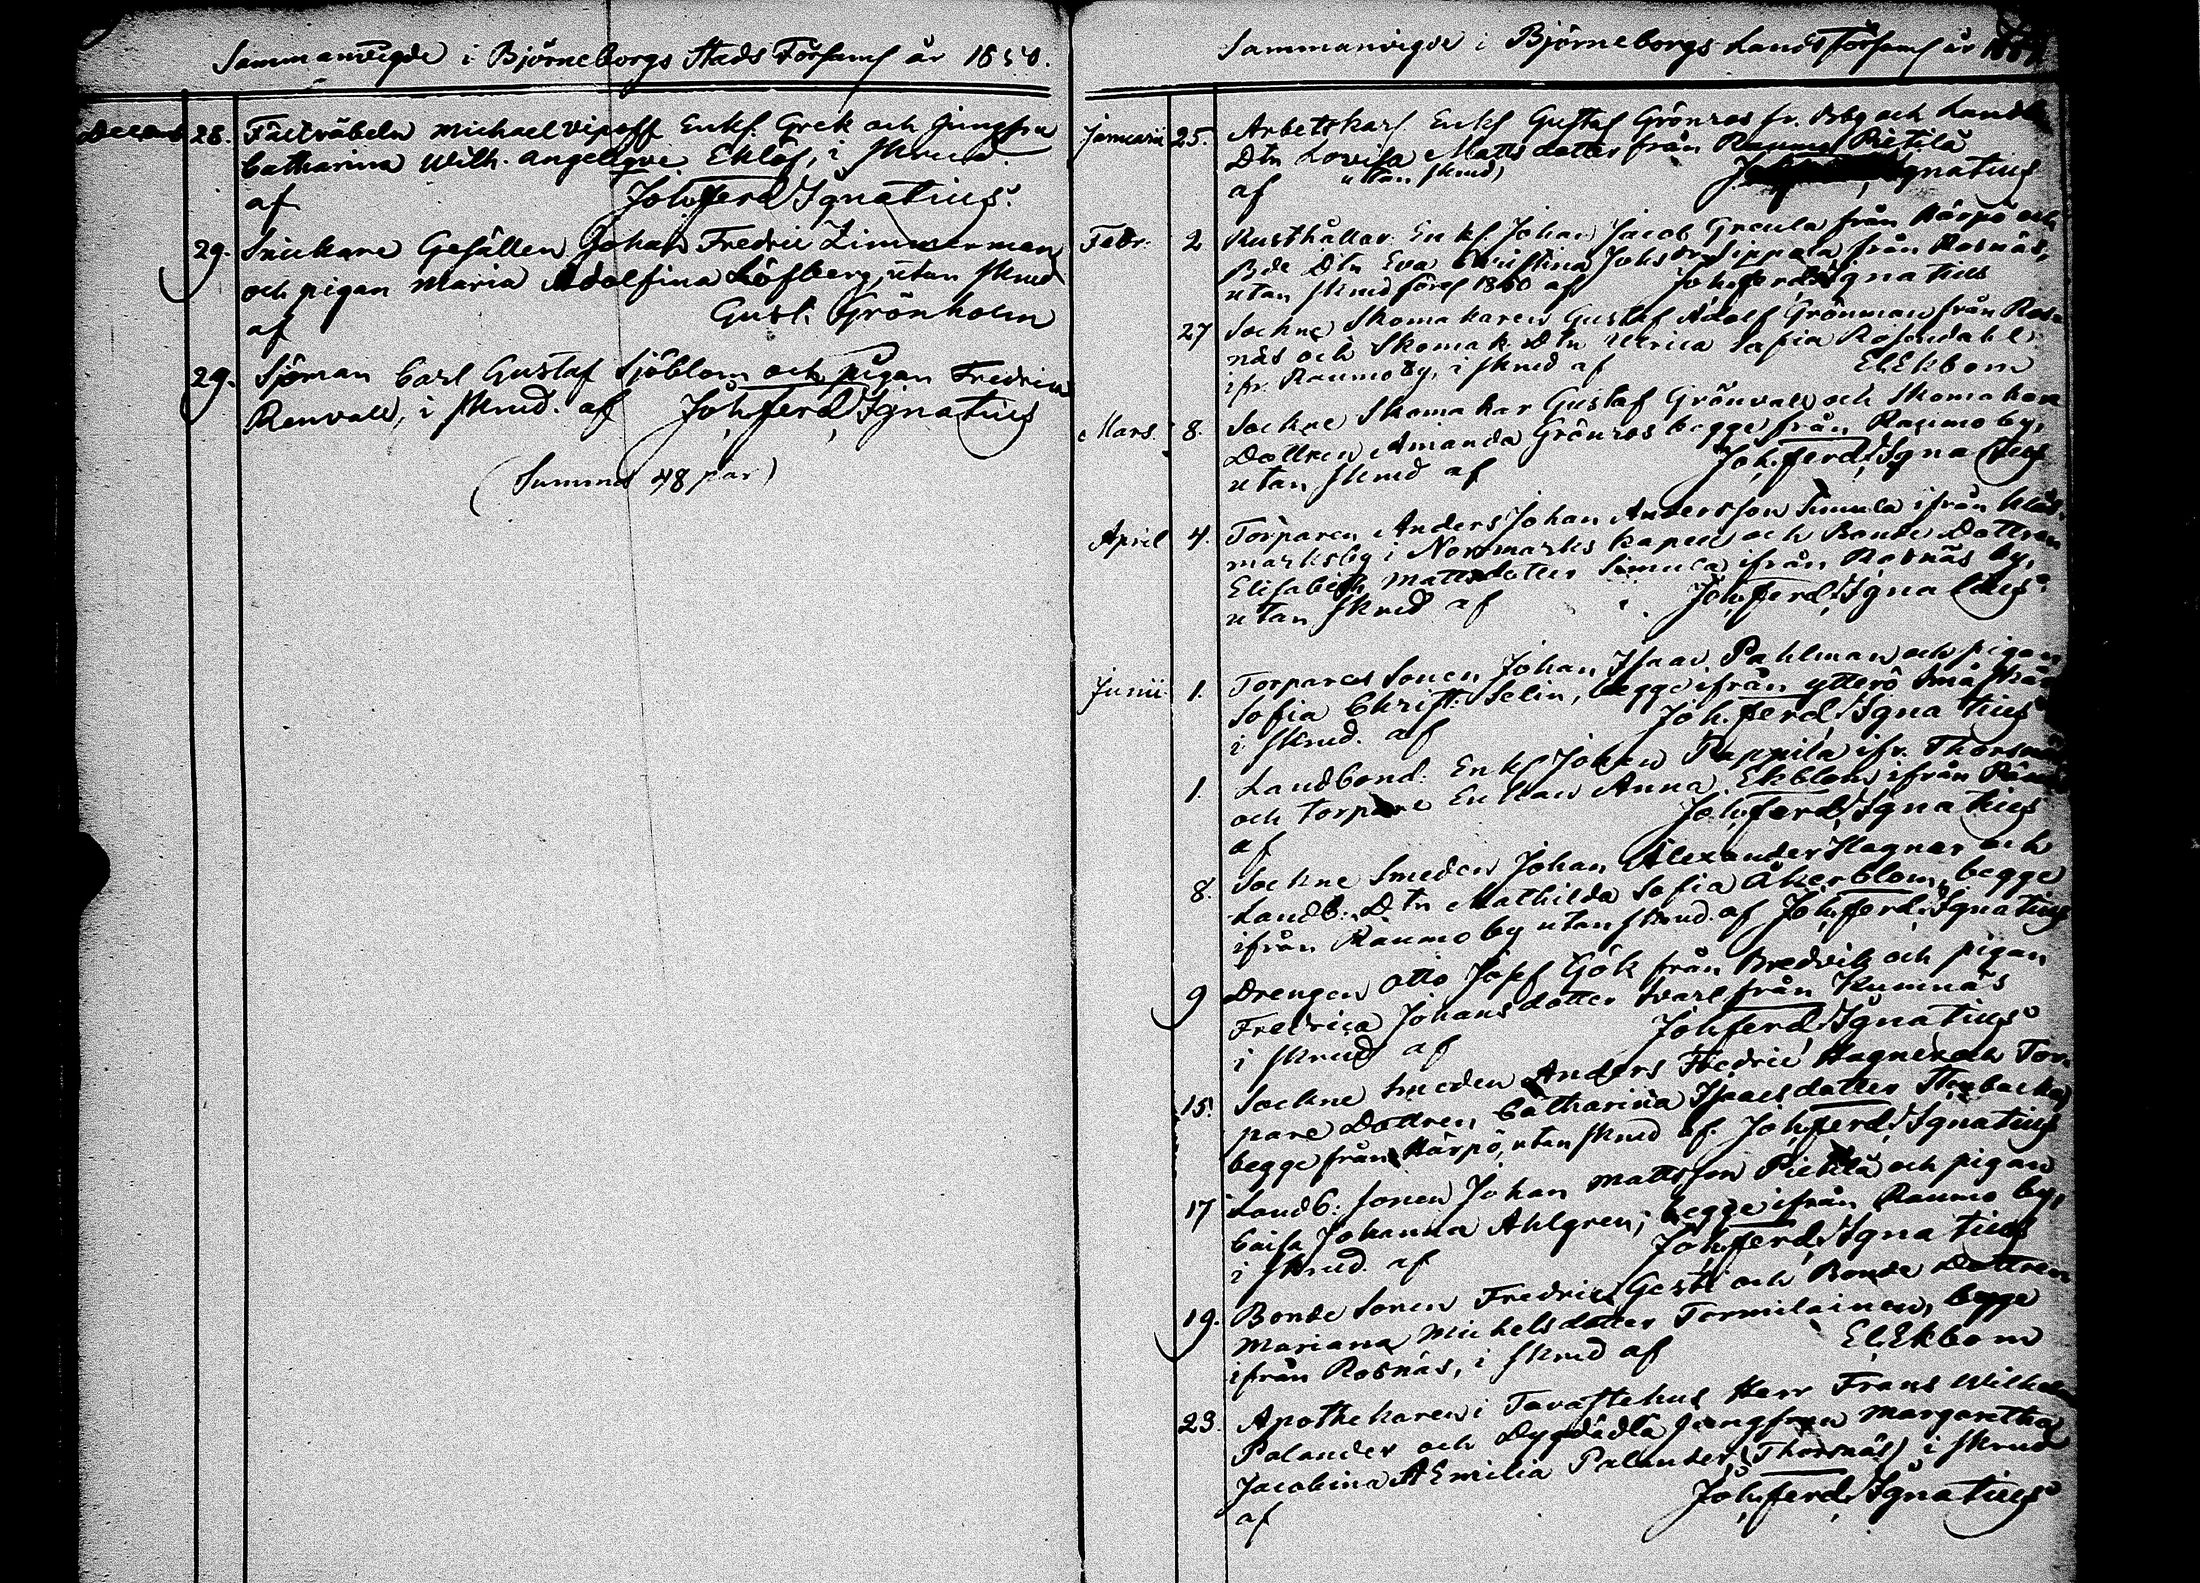 Sammanvigde i Björneborgs Stads Församl år 1850.
Decemb 28. Fältväbeln Michael Vipoff Enkl. Grek och jungfru
Catharina Wilh. Angelique Eklöf, i skrud.
af Joh. Ferd. Ignatius.
29. Snickare Gesällen Johan Fredric Zimmerman
och pigan Maria Adolfina Löfberg, utan skrud
af Gust. Grönholm
29. Sjöman Carl Gustaf Sjöblom och pigan Fredrica
Renvall, i skrud. af Joh. Ferd. Ignatius
(Summa 48 par)
Sammanvigde i Björneborgs Lands Församl år
Januarii 25. Arbetskarl Enkl Gustaf Grönroos fr. Bbg och Landb
Dtn Lovisa Mattsdotter från Raumo Pietilä
utan skrud)
af Ignatius
Febr. 2 Rusthållar Enkl. Johan Jacob Groula från Härpö och
Bde Dtn Eva Christina Johsdr Sippola från Rosnäs,
utan skrud förel 1860 af Joh. Ferd. Ignatius
27 Sockne Skomakaren Gustaf Adolf Grönman från Ros-
näs och Skomak Dtn Ulrica Sofia Rosendahl
ifr. Raumo by, i skrud af El. Ekbom
Mars. 8. Sockne Skomakar Gustaf Grönvall och Skomakar
Dottren Amanda Grönroos begge från Raumo by,
utan skrud af Joh. Ferd. Ignatius
April 4. Torparen Anders Johan Andersson Simula ifrån
marksby i Norrmarks Capell och Bonde Dottren
Elisabeth Mattsdotter Simula ifrån Rosnäs by,
utan skrud af Joh. Ferd. Ignatius.
Junii 1. Torpares Sonen Johan Isaac Pahlman och pigan
Sofia Christ: Selin, begge ifrån ytterö Småskär
i skrud. af Joh. Ferd. Ignatius
1. Landbond. Enkl Johan Pappila ifr. Thorsnäs
och torpare Enkan Anna Ekblom ifrån
af Joh. Ferd. Ignatius
8. Sockne Smeden Johan Alexander Hagner och
Landb. Dtn Mathilda Sofia Åkerblom, begge
ifrån Raumo by utan skrud. af Joh. Ferd. Ignatius
9 Drengen Otto Josef Gök från Bredvik och pigan
Fredrica Johansdotter Svarl från Kumnäs
i skrud af Joh. Ferd. Ignatius
15. Sockne Smeden Anders Fredric Hagner och Tor-
pare Dottren Catharina Isaacsdotter Stenbacka
begge från Härpö, utan skrud af. Joh. Ferd. Ignatius
17 Landb: sonen Johan Mattsson Pietilä och pigan
Caisa Johanna Ahlgren, begge ifrån Raumo by,
i skrud. af Joh. Ferd. Ignatius
19. Bonde Sonen Fredric Gesti och Bonde Dottren
Mariana Michelsdotter Tormilainen, begge
ifrån Rosnäs, i skrud af El. Ekbom
23. Apothekaren i Tavastehus Herr Frans Wilhelm
Palander och Dygdädla Jungfrun Margaretha
Jacobina AEmilia Palander (Thorsnäs) i skrud
af Joh. Ferd. Ignatius